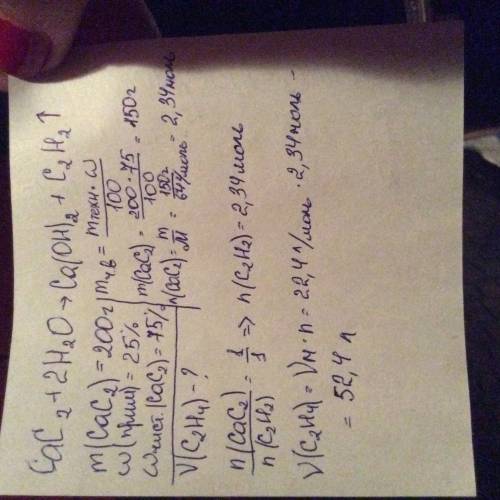 CaC₂ + 2H₂O → Ca(OH)₂ + C₂H₂ ↑
m(CaC₂) = 200г
ω(прим) = 25%
ωчист.(CaC₂) = 75%
V(C₂H₄) - ?
mч.в = mтехн · ω / 100
m(CaC₂) = 200 · 75 / 100 = 150г
n(CaC₂) = m / M = 150г / 64г/моль = 2,34моль
n(CaC₂) / n(C₂H₂) = 1 / 1 => n(C₂H₂) = 2,34моль
V(C₂H₄) = Vм · n = 22,4 л/моль · 2,34моль =
= 52,4 л